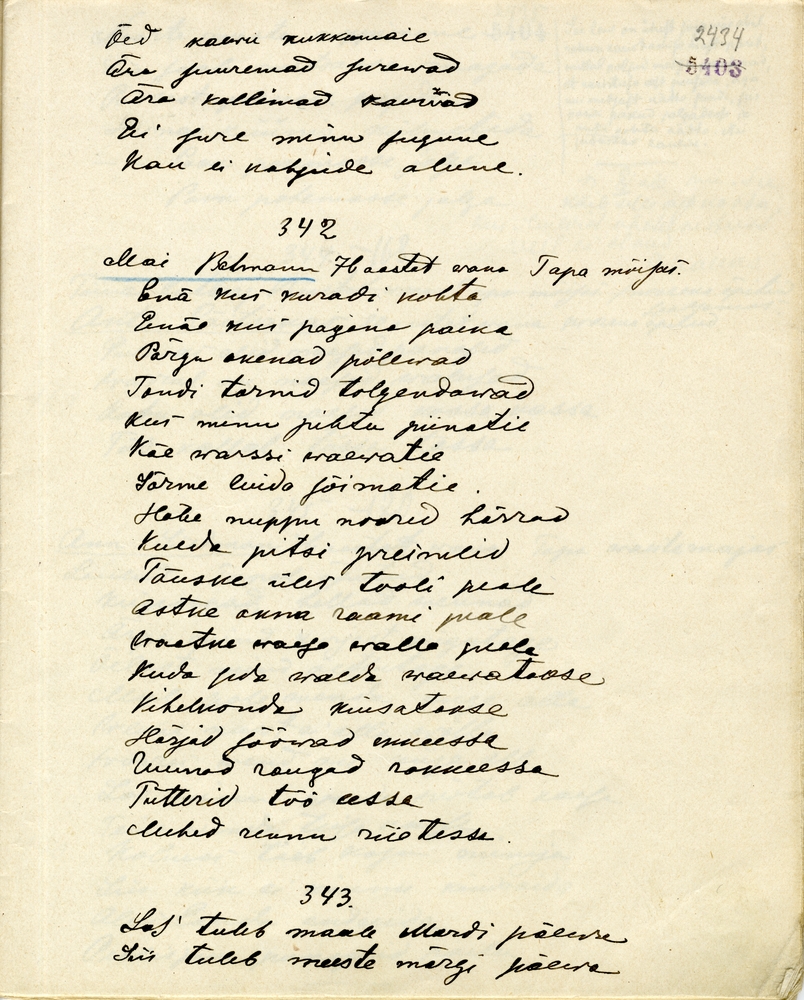 2434
5403
Õed kaawu kukkumaie
Ära suuremad surewad
Ära kallimad kauuwad
Ei sure minu sugune
Kau ei kahjude alune.
342
Mai Rebmann 76 aastat wana Tapa mõisas.
Ennä kus kuradi kohta
Ennäe kus pagana paika
Põrgu akenad põlewad
Tondi tornid tolgendawad
Kus minu pihta piinatie
Käe warssi waewatie
Sörme luida sõimatie.
Hõbe nuppu noored härrad
Kulda pitsi preinulid
Tõuske üles tooli peale
Astke akna raami peale
Waatke waese walla peale
Kuda seda walda waewatakse
Kihelkonda kiusatakse
Härjad söövad ikkeessa
Ruunad raugad rakkeessa
Tütterid töö eessa
Mehed rinnu riietessa.
343.
Las' tuleb maale Mardi päewa
Siis tuleb meeste märgi päewa